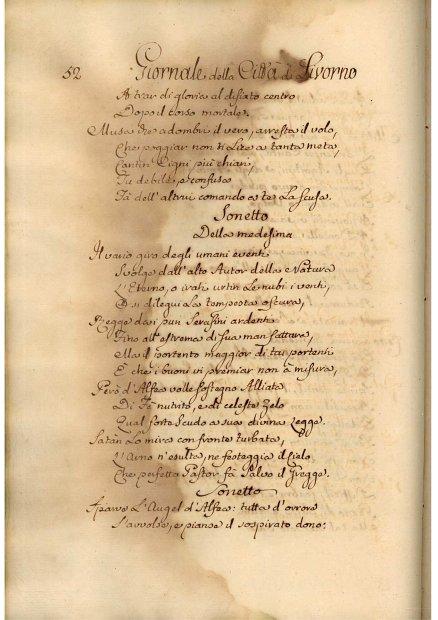 52 Giornale della Città di Livorno
A trar di gloria al disiato centro
Dopo il corso mortale.
Musa che adombri il vero, arresta il volo,
Che poggiar non ti lice a tanta meta,
Cantin Cigni più chiari,
Tu debile, e confusa
Fà dell'altrui comando a te la scusa.
Sonetto
Della medesima
Il vario giro degli umani eventi
Svolge dall'alto Autor della Natura
L'Eterno, o irati urtin le nubi i venti,
O si dilegui la tempesta oscura,
Regge da i puri Serafini ardenti
Fino all'estrema di sua man fattura,
Ma il portento maggior di tai portenti
E che i buoni vi premiar non à misura,
Però d'Alfea volle sostegno Alliata
Di Fè nutrito, e di celeste Zelo
Qual forte Scudo a sua divina Legge.
Satàn lo mira con fronte turbata,
L'Arno n'esulta, ne festeggia il Cielo
Che perfetto Pastor fà salvo il Gregge.
Sonetto
Aparve L'Augel d'Alfea: tutta d'orrore
S'avvolse, e pianse il sospirato dono: